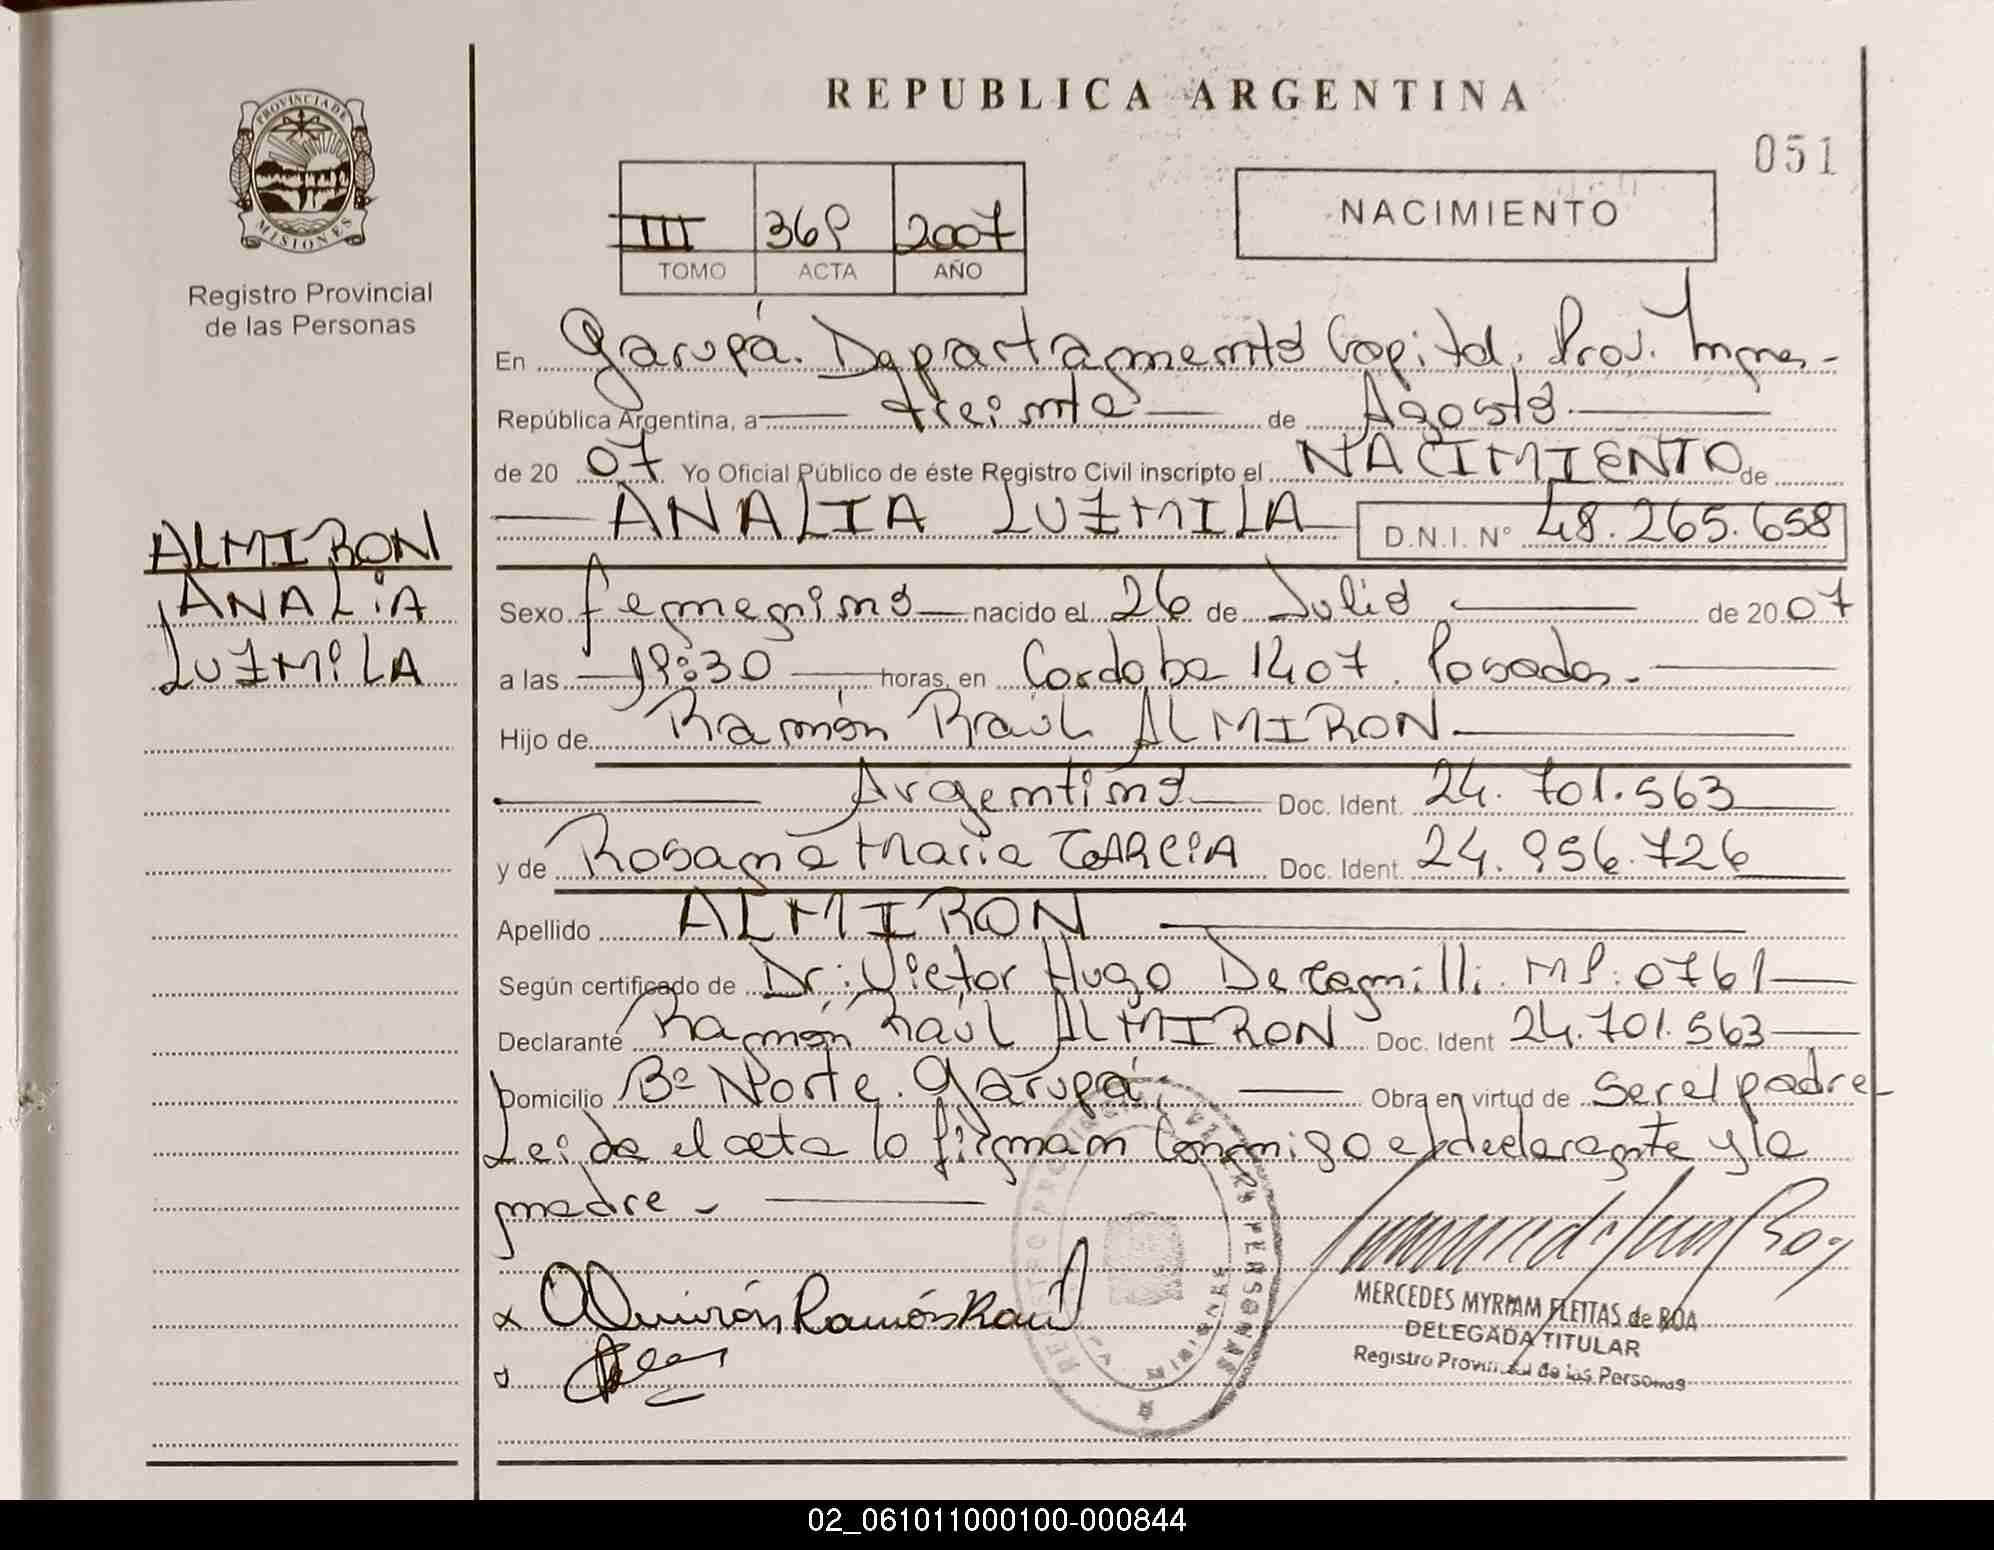 REPUBLICA ARGENTINA
051
PROVINCIA DE
MISIONES
Registro Provincial
de las Personas
III 369 2007
TOMO ACTA AÑO
NACIMIENTO
En Garupá. Departamento Capital. Prov. Mnes-
República Argentina, a treinta de Agosto
de 2007 Yo Oficial Público de éste Registro Civil inscripto el NACIMIENTO de
ANALIA LUZMILA D.N.I. N° 48.265.658
ALMIRON
ANALIA
LUZMILA
Sexo femenino nacido el 26 de Julio de 2007
a las 19:30 horas, en Cordoba 1407. Posadas.
Hijo de Ramón Raúl ALMIRON
Argentino Doc. Ident. 24.701.563
y de Rosana Maria GARCIA Doc. Ident. 24.956.726
Apellido ALMIRON
Según certificado de Dr: Victor Hugo Decamilli. MP: 0761
Declarante Ramón Raúl ALMIRON Doc. Ident 24.701.563
Domicilio Bº Norte. Garupá Obra en virtud de ser el padre-
Leida el acta lo firman conmigo el declarante y la
madre -
x Almirón Ramón Raul
REGISTRO PROVINCIAL DE LAS PERSONAS
MISIONES
MERCEDES MYRIAM FLEITAS de BOA
DELEGADA TITULAR
Registro Provincial de las Personas
02_061011000100-000844